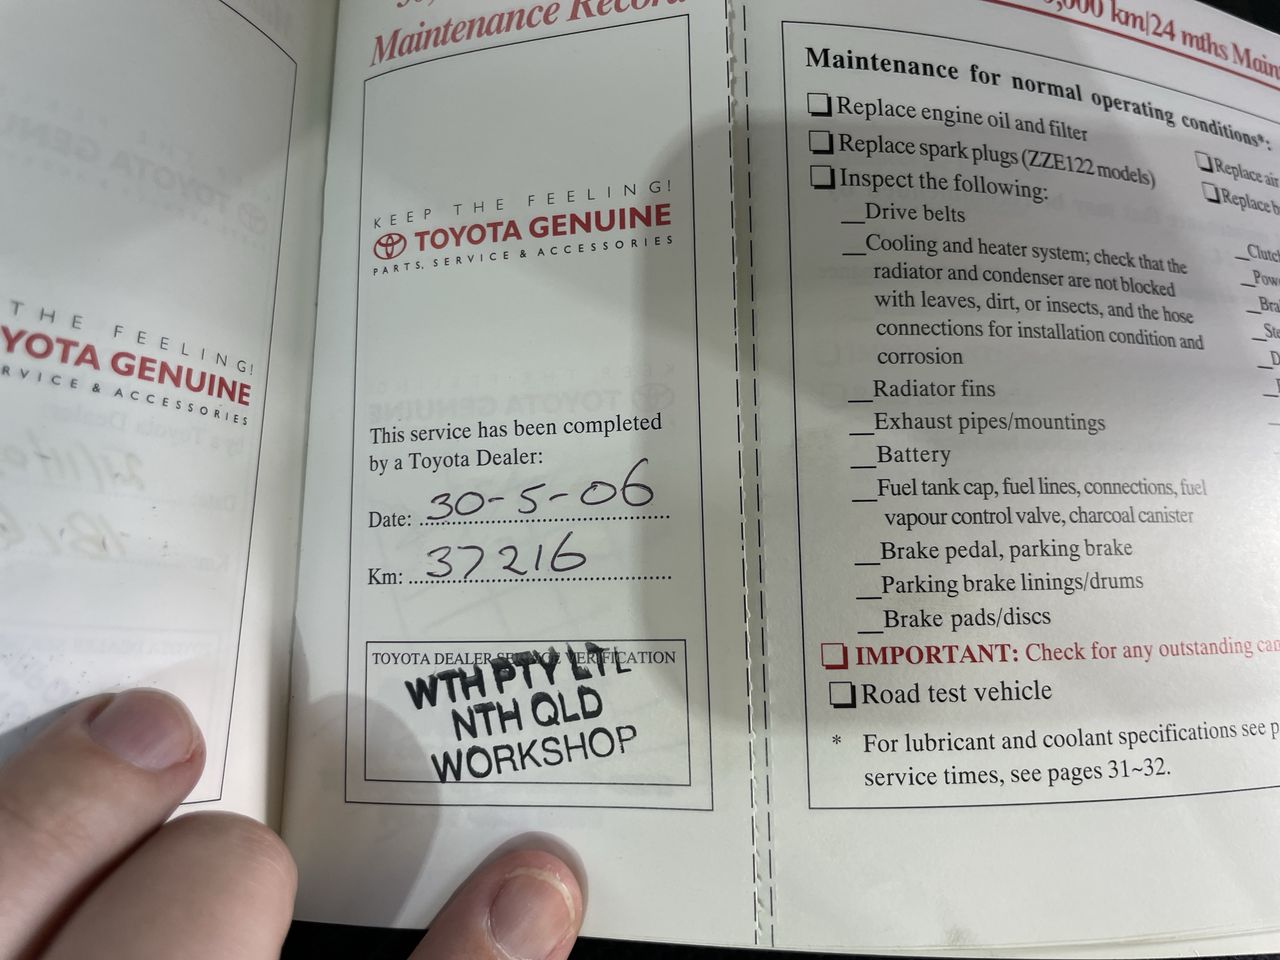 THE FEELING!
YOTA GENUINE
RVICE & ACCESSORIES
Maintenance Record
KEEP THE FEELING!
TOYOTA GENUINE
PARTS, SERVICE & ACCESSORIES
This service has been completed
by a Toyota Dealer:
Date: 30-5-06
Km: 37216
TOYOTA DEALER SERVICE VERIFICATION
WTH PTY LTL
NTH QLD
WORKSHOP
,000 km|24 mths Main
Maintenance for normal operating conditions*:
Replace engine oil and filter
Replace spark plugs (ZZE122 models)
Inspect the following:
Drive belts
Cooling and heater system; check that the
radiator and condenser are not blocked
with leaves, dirt, or insects, and the hose
connections for installation condition and
corrosion
Radiator fins
Exhaust pipes/mountings
Battery
Fuel tank cap, fuel lines, connections, fuel
vapour control valve, charcoal canister
Brake pedal, parking brake
Parking brake linings/drums
Brake pads/discs
Replace air
Replace b
Clutch
Powe
Bra
Ste
D
IMPORTANT: Check for any outstanding cam
Road test vehicle
* For lubricant and coolant specifications see p
service times, see pages 31~32.